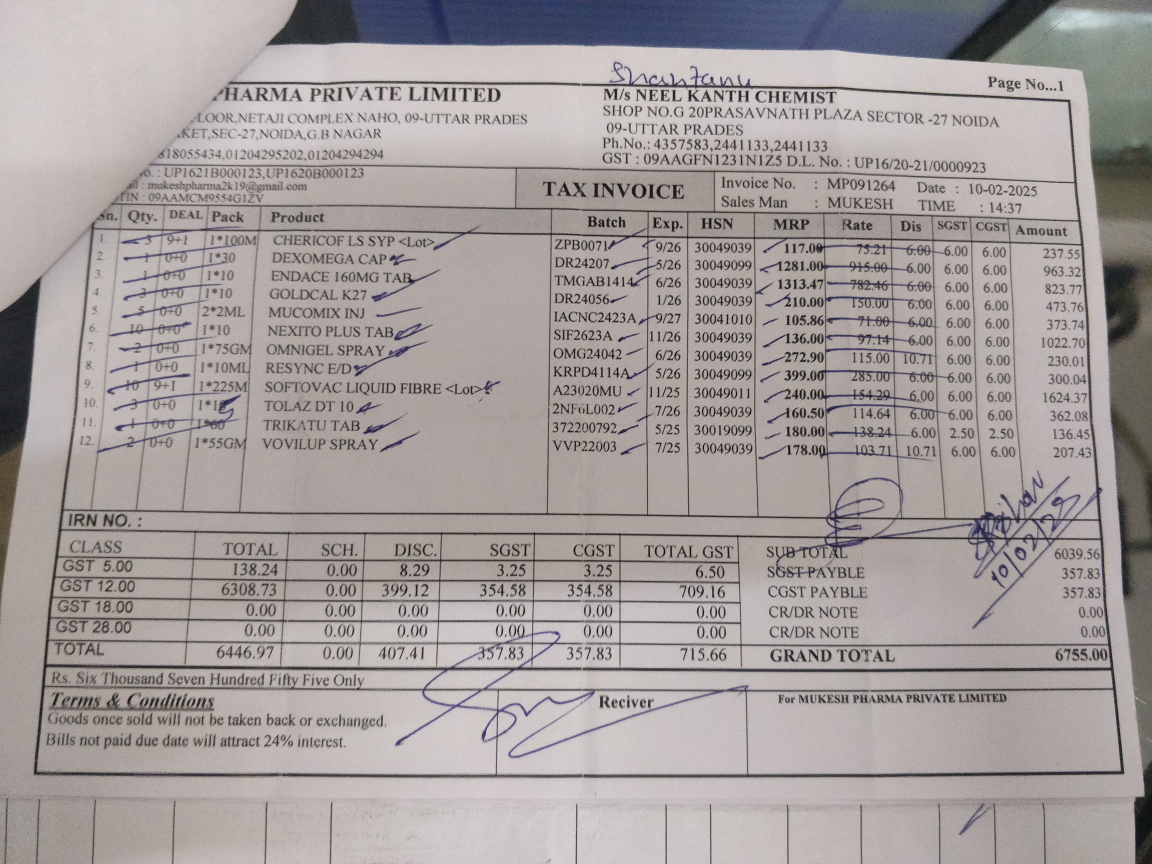 Shantanu
Page No...1
PHARMA PRIVATE LIMITED
M/s NEEL KANTH CHEMIST
LOOR,NETAJI COMPLEX NAHO, 09-UTTAR PRADES
SHOP NO.G 20PRASAVNATH PLAZA SECTOR -27 NOIDA
KET,SEC-27,NOIDA,G.B NAGAR
09-UTTAR PRADES
Ph.No.: 4357583,2441133,2441133
818055434,01204295202,01204294294
GST : 09AAGFN1231N1Z5 D.L. No. : UP16/20-21/0000923
o. : UP1621B000123,UP1620B000123
ail : mukeshpharma2k19@gmail.com
TIN : 09AAMCM9554G1ZV
TAX INVOICE
Invoice No. : MP091264 Date : 10-02-2025
Sales Man : MUKESH TIME : 14:37
Sn. Qty. DEAL Pack Product Batch Exp. HSN MRP Rate Dis SGST CGST Amount
1. 3 9+1 1*100M CHERICOF LS SYP <Lot> ZPB0071 9/26 30049039 117.00 75.21 6.00 6.00 6.00 237.55
2. 1 0+0 1*30 DEXOMEGA CAP DR24207 5/26 30049099 1281.00 915.00 6.00 6.00 6.00 963.32
3. 1 0+0 1*10 ENDACE 160MG TAB TMGAB1414 6/26 30049039 1313.47 782.46 6.00 6.00 6.00 823.77
4. 3 0+0 1*10 GOLDCAL K27 DR24056 1/26 30049039 210.00 150.00 6.00 6.00 6.00 473.76
5. 5 0+0 2*2ML MUCOMIX INJ IACNC2423A 9/27 30041010 105.86 71.00 6.00 6.00 6.00 373.74
6. 10 0+0 1*10 NEXITO PLUS TAB SIF2623A 11/26 30049039 136.00 97.14 6.00 6.00 6.00 1022.70
7. 2 0+0 1*75GM OMNIGEL SPRAY OMG24042 6/26 30049039 272.90 115.00 10.71 6.00 6.00 230.01
8. 1 0+0 1*10ML RESYNC E/D KRPD4114A 5/26 30049099 399.00 285.00 6.00 6.00 6.00 300.04
9. 10 9+1 1*225M SOFTOVAC LIQUID FIBRE <Lot> A23020MU 11/25 30049011 240.00 154.29 6.00 6.00 6.00 1624.37
10. 3 0+0 TOLAZ DT 10 2NF6L002 7/26 30049039 160.50 114.64 6.00 6.00 6.00 362.08
11. 1 0+0 1*60 TRIKATU TAB 372200792 5/25 30019099 180.00 138.24 6.00 2.50 2.50 136.45
12. 2 0+0 1*55GM VOVILUP SPRAY VVP22003 7/25 30049039 178.00 103.71 10.71 6.00 6.00 207.43
10/02/25
IRN NO. :
CLASS TOTAL SCH. DISC. SGST CGST TOTAL GST
GST 5.00 138.24 0.00 8.29 3.25 3.25 6.50
GST 12.00 6308.73 0.00 399.12 354.58 354.58 709.16
GST 18.00 0.00 0.00 0.00 0.00 0.00 0.00
GST 28.00 0.00 0.00 0.00 0.00 0.00 0.00
TOTAL 6446.97 0.00 407.41 357.83 357.83 715.66
SUB TOTAL 6039.56
SGST PAYBLE 357.83
CGST PAYBLE 357.83
CR/DR NOTE 0.00
CR/DR NOTE 0.00
GRAND TOTAL 6755.00
Rs. Six Thousand Seven Hundred Fifty Five Only
Terms & Conditions
Goods once sold will not be taken back or exchanged.
Bills not paid due date will attract 24% interest.
Reciver
For MUKESH PHARMA PRIVATE LIMITED